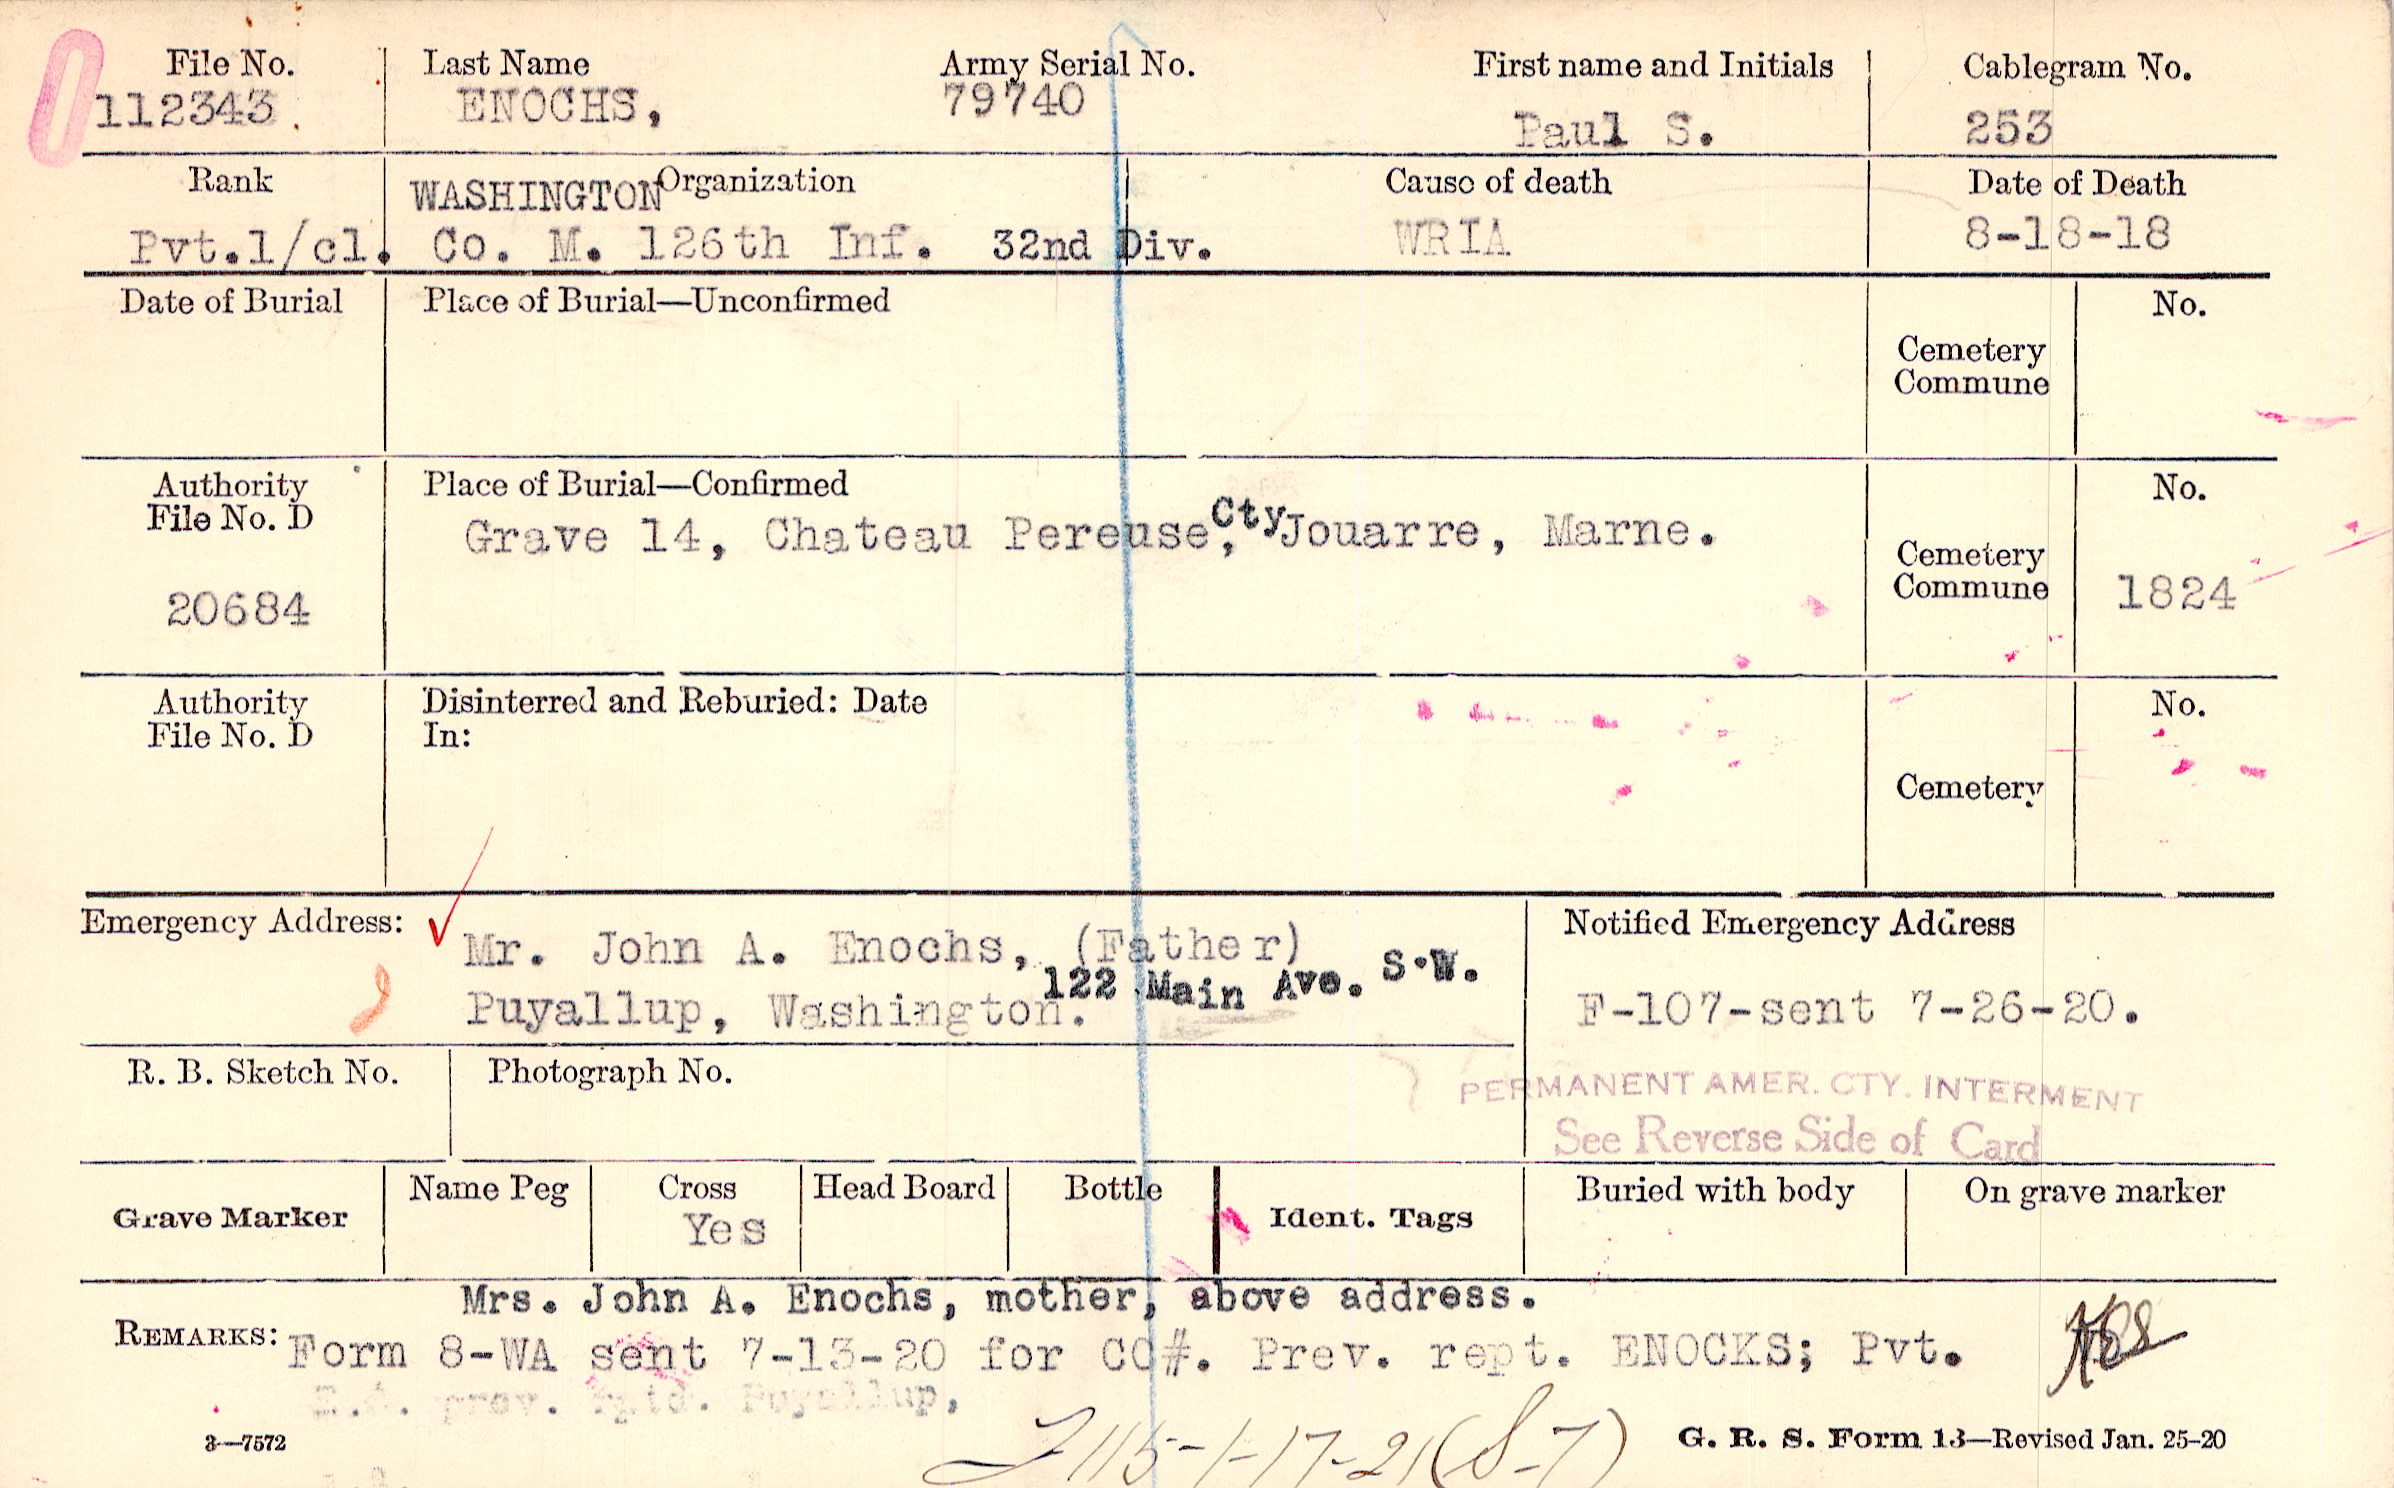 File No. Last Name Army Serial No. First name and Initials Cablegram No.
112343 ENOCHS, 79740 Paul S. 253
Rank WASHINGTON Organization Cause of death Date of Death
Pvt.1/cl. Co. M. 126th Inf. 32nd Div. WRIA 8-18-18
Date of Burial Place of Burial—Unconfirmed No.
Cemetery
Commune
Authority Place of Burial—Confirmed No.
File No. D
Grave 14, Chateau Pereuse, Cty Jouarre, Marne.
Cemetery
Commune 1824
20684
Authority Disinterred and Reburied: Date No.
File No. D In:
Cemetery
Emergency Address: Notified Emergency Address
Mr. John A. Enochs, (Father)
122 Main Ave. S.W.
Puyallup, Washington. F-107-sent 7-26-20.
R. B. Sketch No. Photograph No.
PERMANENT AMER. CTY. INTERMENT
See Reverse Side of Card
Grave Marker Name Peg Cross Head Board Bottle Ident. Tags Buried with body On grave marker
Yes
Mrs. John A. Enochs, mother, above address.
REMARKS: Form 8-WA sent 7-13-20 for CC#. Prev. rept. ENOCKS; Pvt.
prev. Puyallup,
3—7572 115-1-17-21(S-7) G. R. S. Form 13—Revised Jan. 25-20